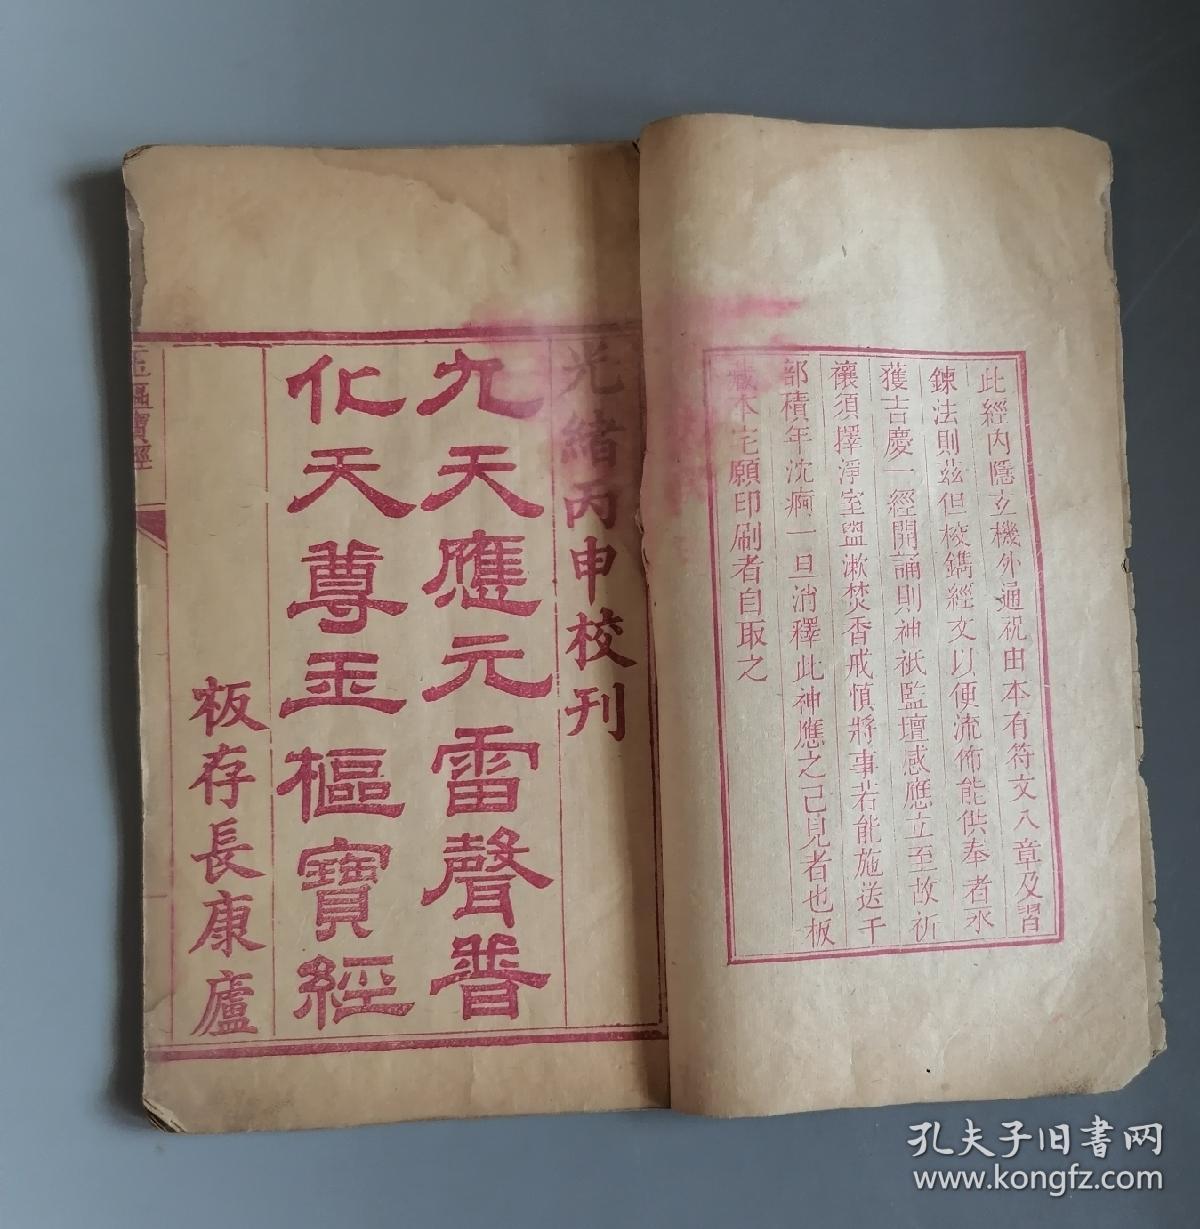 此經內隱玄機外通祝由本有符文八章及習
鍊法則茲但校鐫經文以便流佈能供奉者永
獲吉慶一經開誦則神祇監壇感應立至故祈
禳須擇淨室盥漱焚香戒慎將事若能施送千
部積年沈痾一旦消釋此神應之己見者也板
藏本宅願印刷者自取之
光緒丙申校刊
九天應元雷聲普
化天尊玉樞寶經
板存長康廬
玉樞寶經
孔夫子旧书网
www.kongfz.com